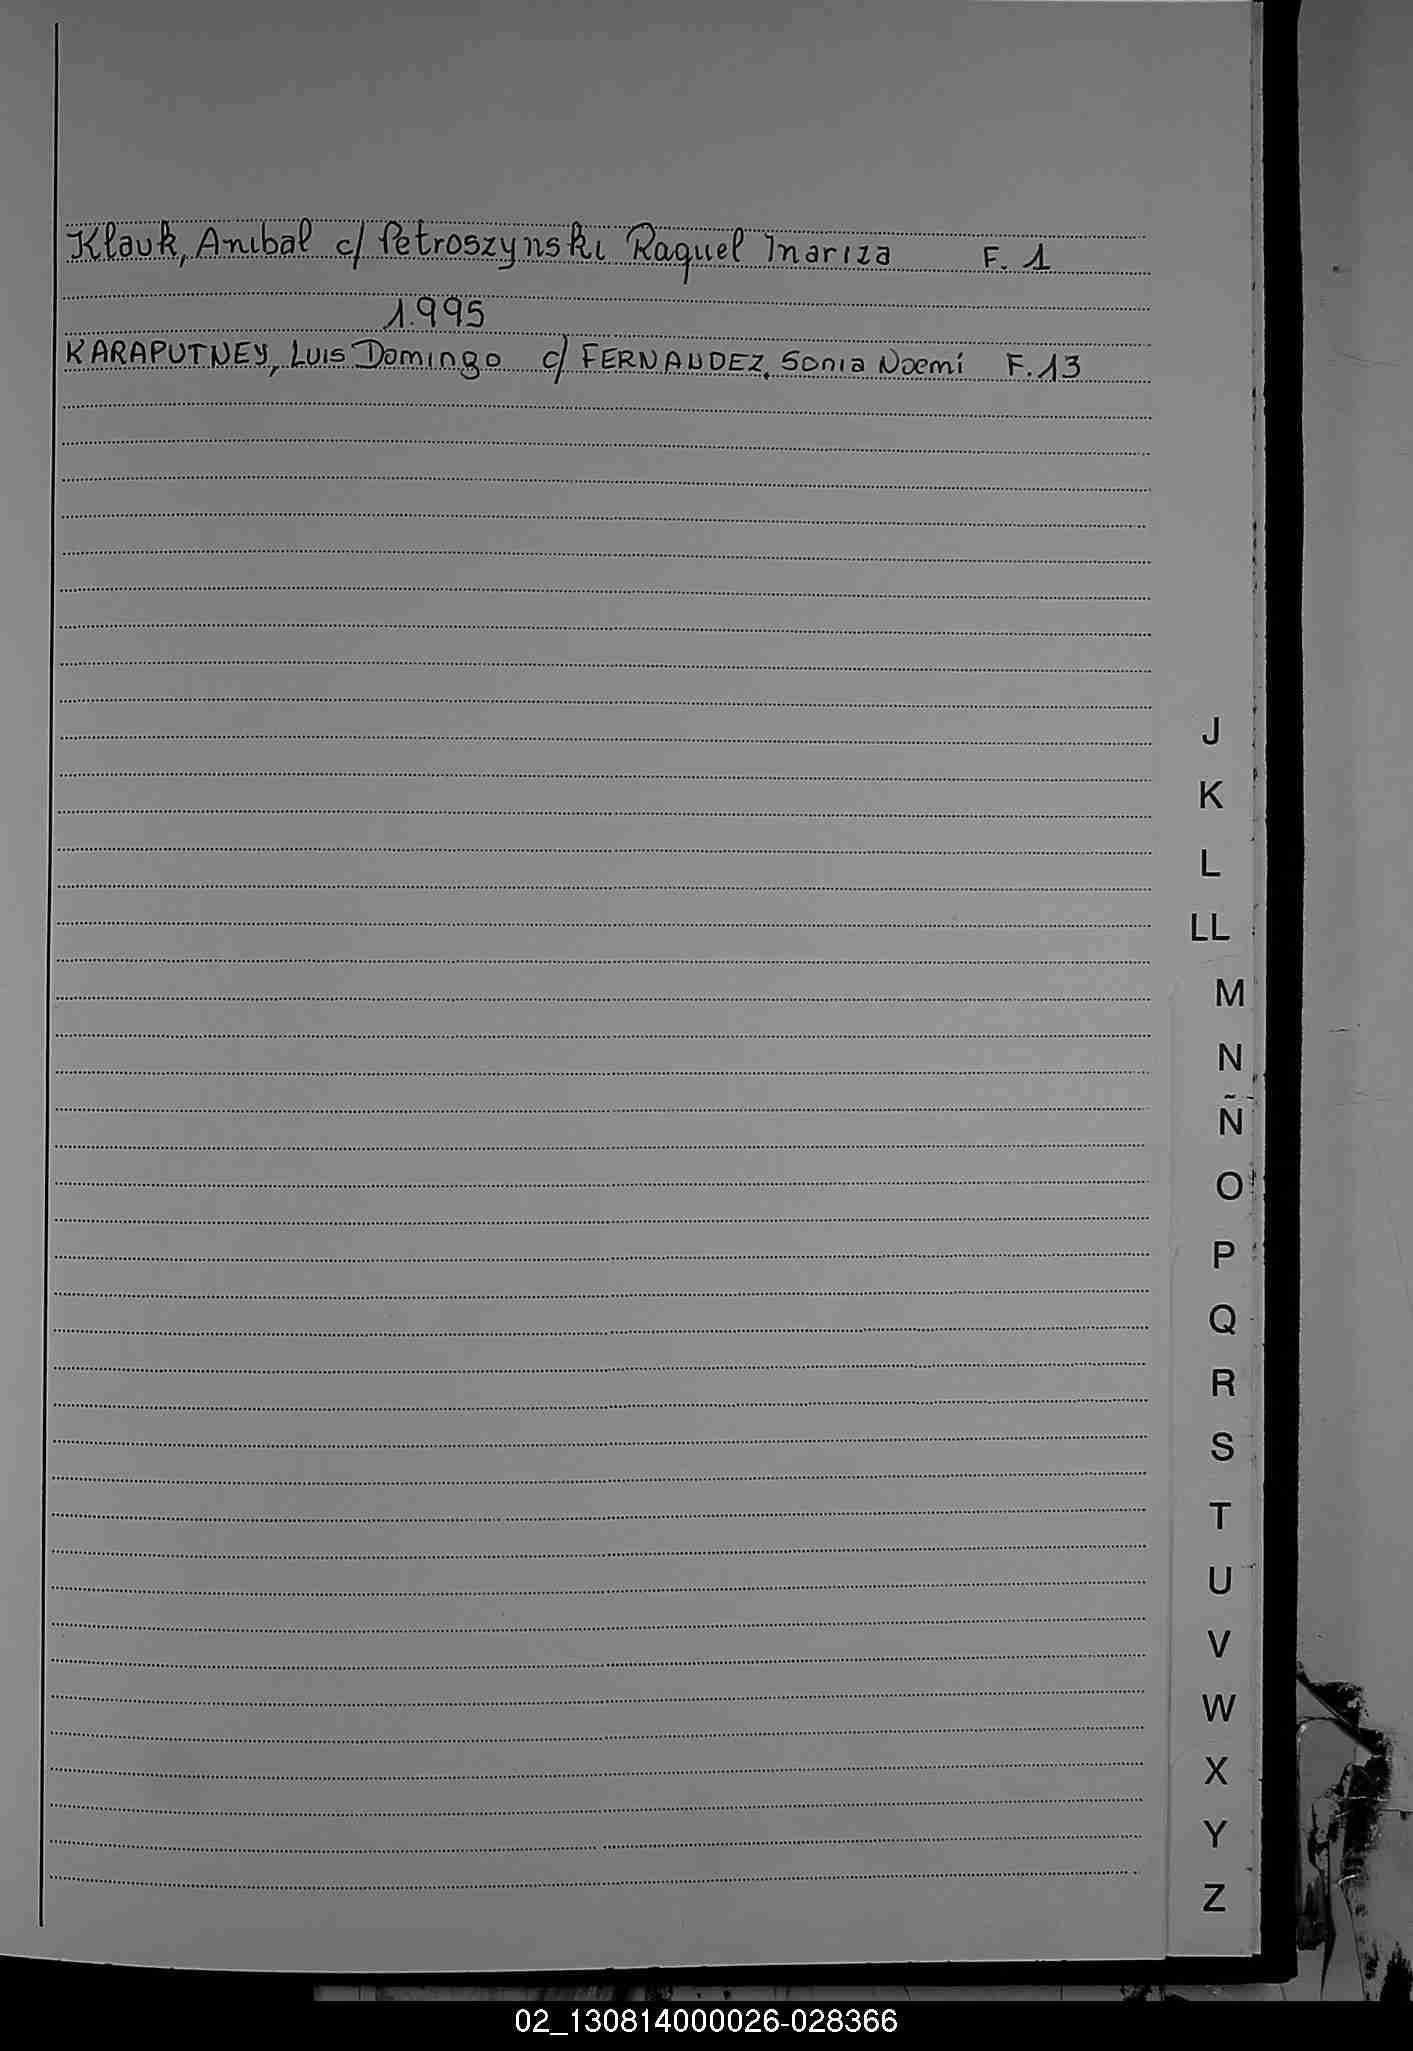 Klauk, Anibal c/ Petroszynski Raquel Mariza F. 1
1.995
KARAPUTNEY, Luis Domingo c/ FERNANDEZ, Sonia Noemi F. 13
J
K
L
LL
M
N
Ñ
O
P
Q
R
S
T
U
V
W
X
Y
Z
02_130814000026-028366